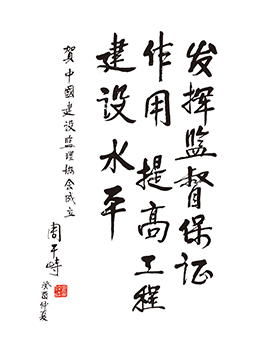 发挥监督保证
作用 提高工程
建设水平
贺中國建设监理协会成立
周干峙
癸酉仲夏